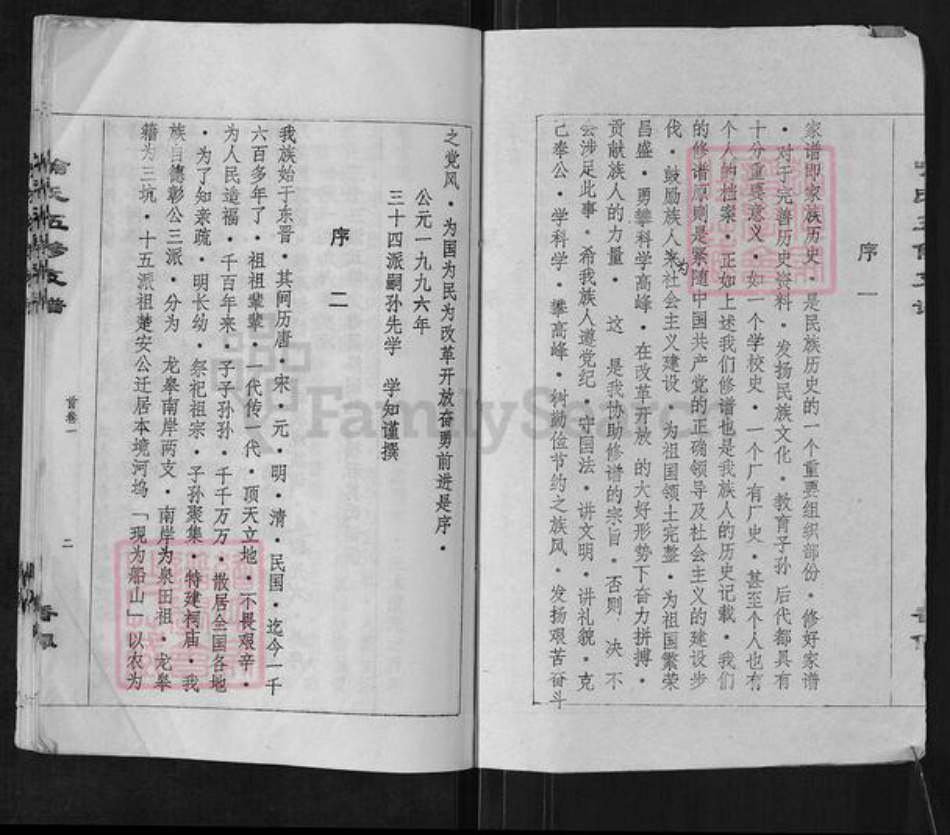 序一
家谱即家族历史・是民族历史的一个重要组织部份・修好家谱
・对于完善历史资料・发扬民族文化・教育子孙 后代都具有
十分重要意义・如一个学校史・一个厂有厂史・甚至个人也有
个人的档案・正如上述我们修谱也是我族人的历史记载・我们
的修谱原则是紧随中国共产党的正确领导及社会主义的建设步
伐・鼓励族人来为社会主义建设・为祖国领土完整・为祖国繁荣
昌盛・勇攀科学高峰・在改革开放 的大好形势下奋力拼搏・
贡献族人的力量・ 这 是我协助修谱的宗旨・否则 决 不
会涉足此事・希我族人遵党纪・守国法・讲文明・讲礼貌・克
己奉公・学科学・攀高峰・树勤俭节约之族风・发扬艰苦奋斗
之党风・为国为民为改革开放奋勇前进是序・
公元一九九六年
三十四派嗣孙先学 学知谨撰
序二
我族始于东晋・其间历唐・宋・元・明・清・民国・迄今一千
六百多年了・祖祖辈辈・一代传一代・顶天立地・不畏艰辛・
为人民造福・千百年来・子子孙孙・千千万万・散居全国各地
・为了知亲疏・明长幼・祭祀祖宗・子孙聚集・特建祠庙・我
族自德彰公三派・分为 龙皋南岸两支・南岸为泉田祖・龙皋
籍为三坑・十五派祖楚安公迁居本境河坞「现为船山」以农为
氏五修支谱
首卷一
二
FamilySearch